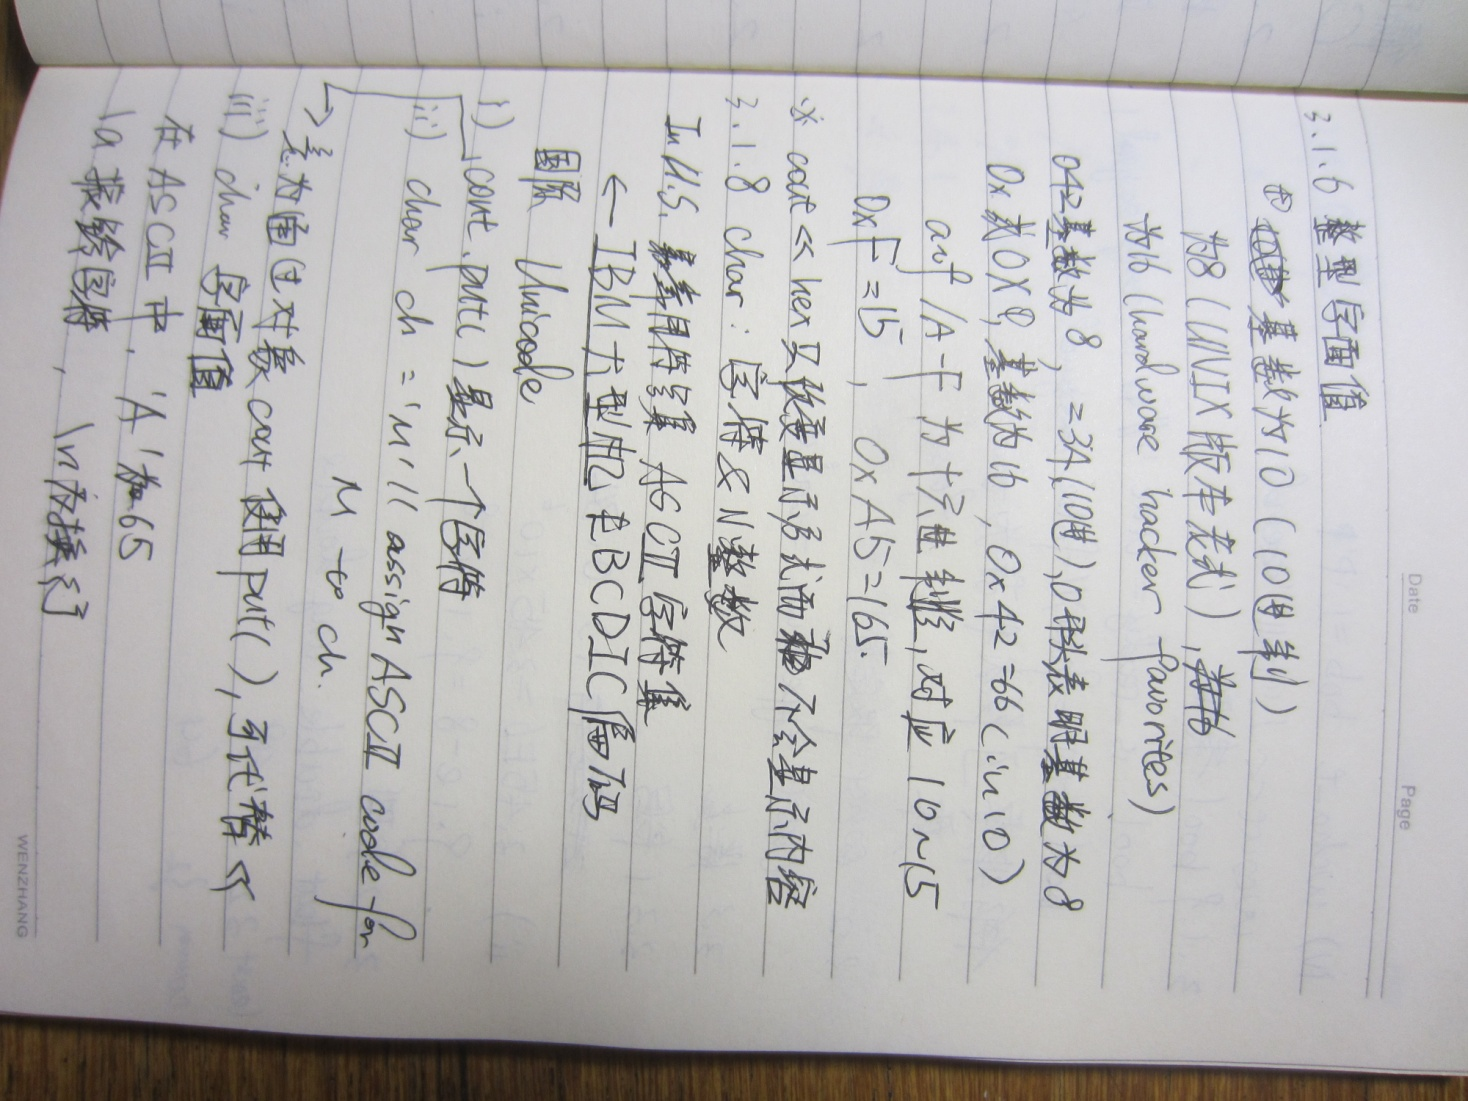 Date
Page
3.1.6 整型字面值
① 基数为10(10进制)
为8(UNIX版本老式),
为16(hardware hacker favorites)
042基数为8, =34(10进),0开头表明基数为8
0x或0X, 基数为16, 0x42=66(in 10)
a-f/A-F 为十六进制, 对应10~15
0xF=15, 0xA5=165.
※ cout << hex 只改变显示形式而不会显示内容
3.1.8 char:字符&N整数
In U.S. 最常用符号集 ASCII字符集
← IBM大型机 EBCDIC编码
国际 Unicode
i) cout.put()显示一个字符
ii) char ch = 'M' // assign ASCII code for
M to ch.
→ 意为通过对象cout使用put(),可代替<<
iii) char 字面值
在ASCII中,'A'为65
\a 振铃字符, \n 为换行
WENZHANG